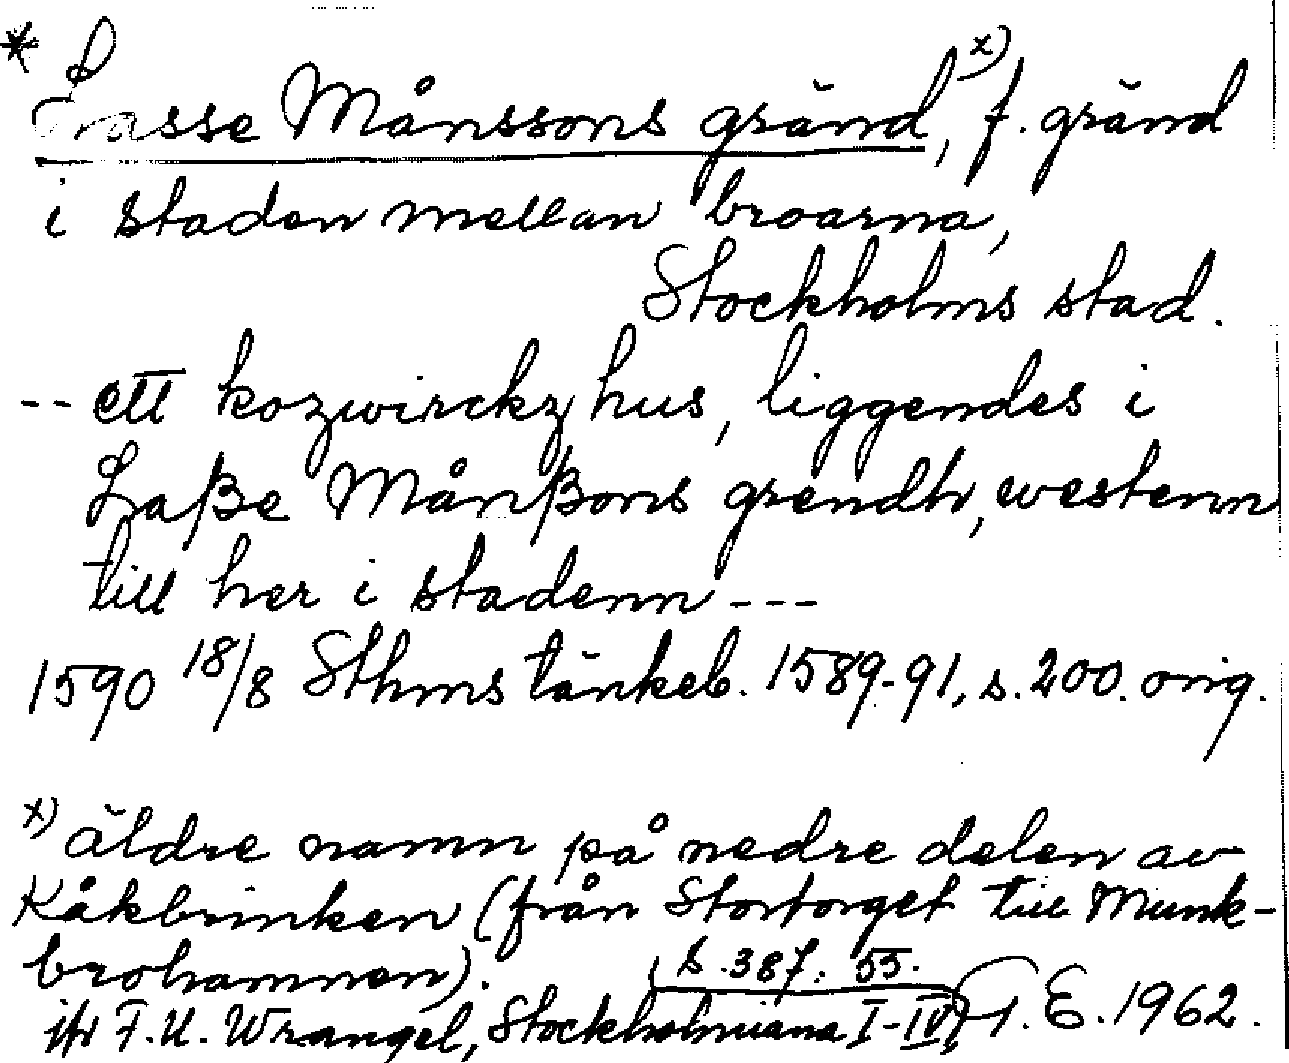 * Lasse Månssons gränd, x) f. gränd
i staden mellan broarna,
Stockholms stad.
-- ett kozwirckz hus, liggendes i
Laße Månßons grendh, westenn
till her i stadenn ---
1590 18/8 Sthms tänkeb. 1589-91, s. 200. orig.
x) äldre namn på nedre delen av
Kåkbrinken (från Stortorget till Munk-
brohamnen).
s. 387: 55.
jfr F. U. Wrangel, Stockholmiana I-IV, T. E. 1962.